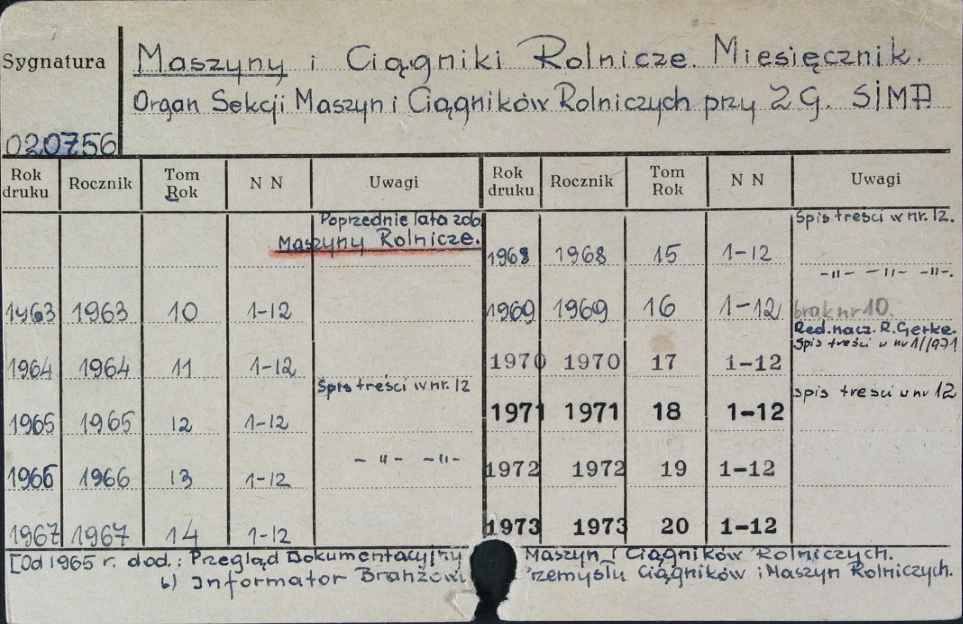 Sygnatura
Maszyny i Ciągniki Rolnicze. Miesięcznik.
Organ Sekcji Maszyn i Ciągników Rolniczych przy ZG. SIMP
020756
Rok druku Rocznik Tom Rok N N Uwagi Rok druku Rocznik Tom Rok N N Uwagi
Poprzednie lata zob.
Maszyny Rolnicze.
Spis treści w nr. 12.
1968 1968 15 1-12
-"- -"- -"-.
1963 1963 10 1-12
1969 1969 16 1-12 brak nr 10.
Red. nacz. R. Gerke.
Spis treści w nr 1/1971
1964 1964 11 1-12
1970 1970 17 1-12
Spis treści w nr. 12
spis treści w nr 12
1965 1965 12 1-12
1971 1971 18 1-12
-"- -"-
1966 1966 13 1-12
1972 1972 19 1-12
1967 1967 14 1-12
1973 1973 20 1-12
[Od 1965 r. dod.: Przegląd Dokumentacyjny Maszyn i Ciągników Rolniczych.
b) Informator Branżow rzemysłu Ciągników i Maszyn Rolniczych.